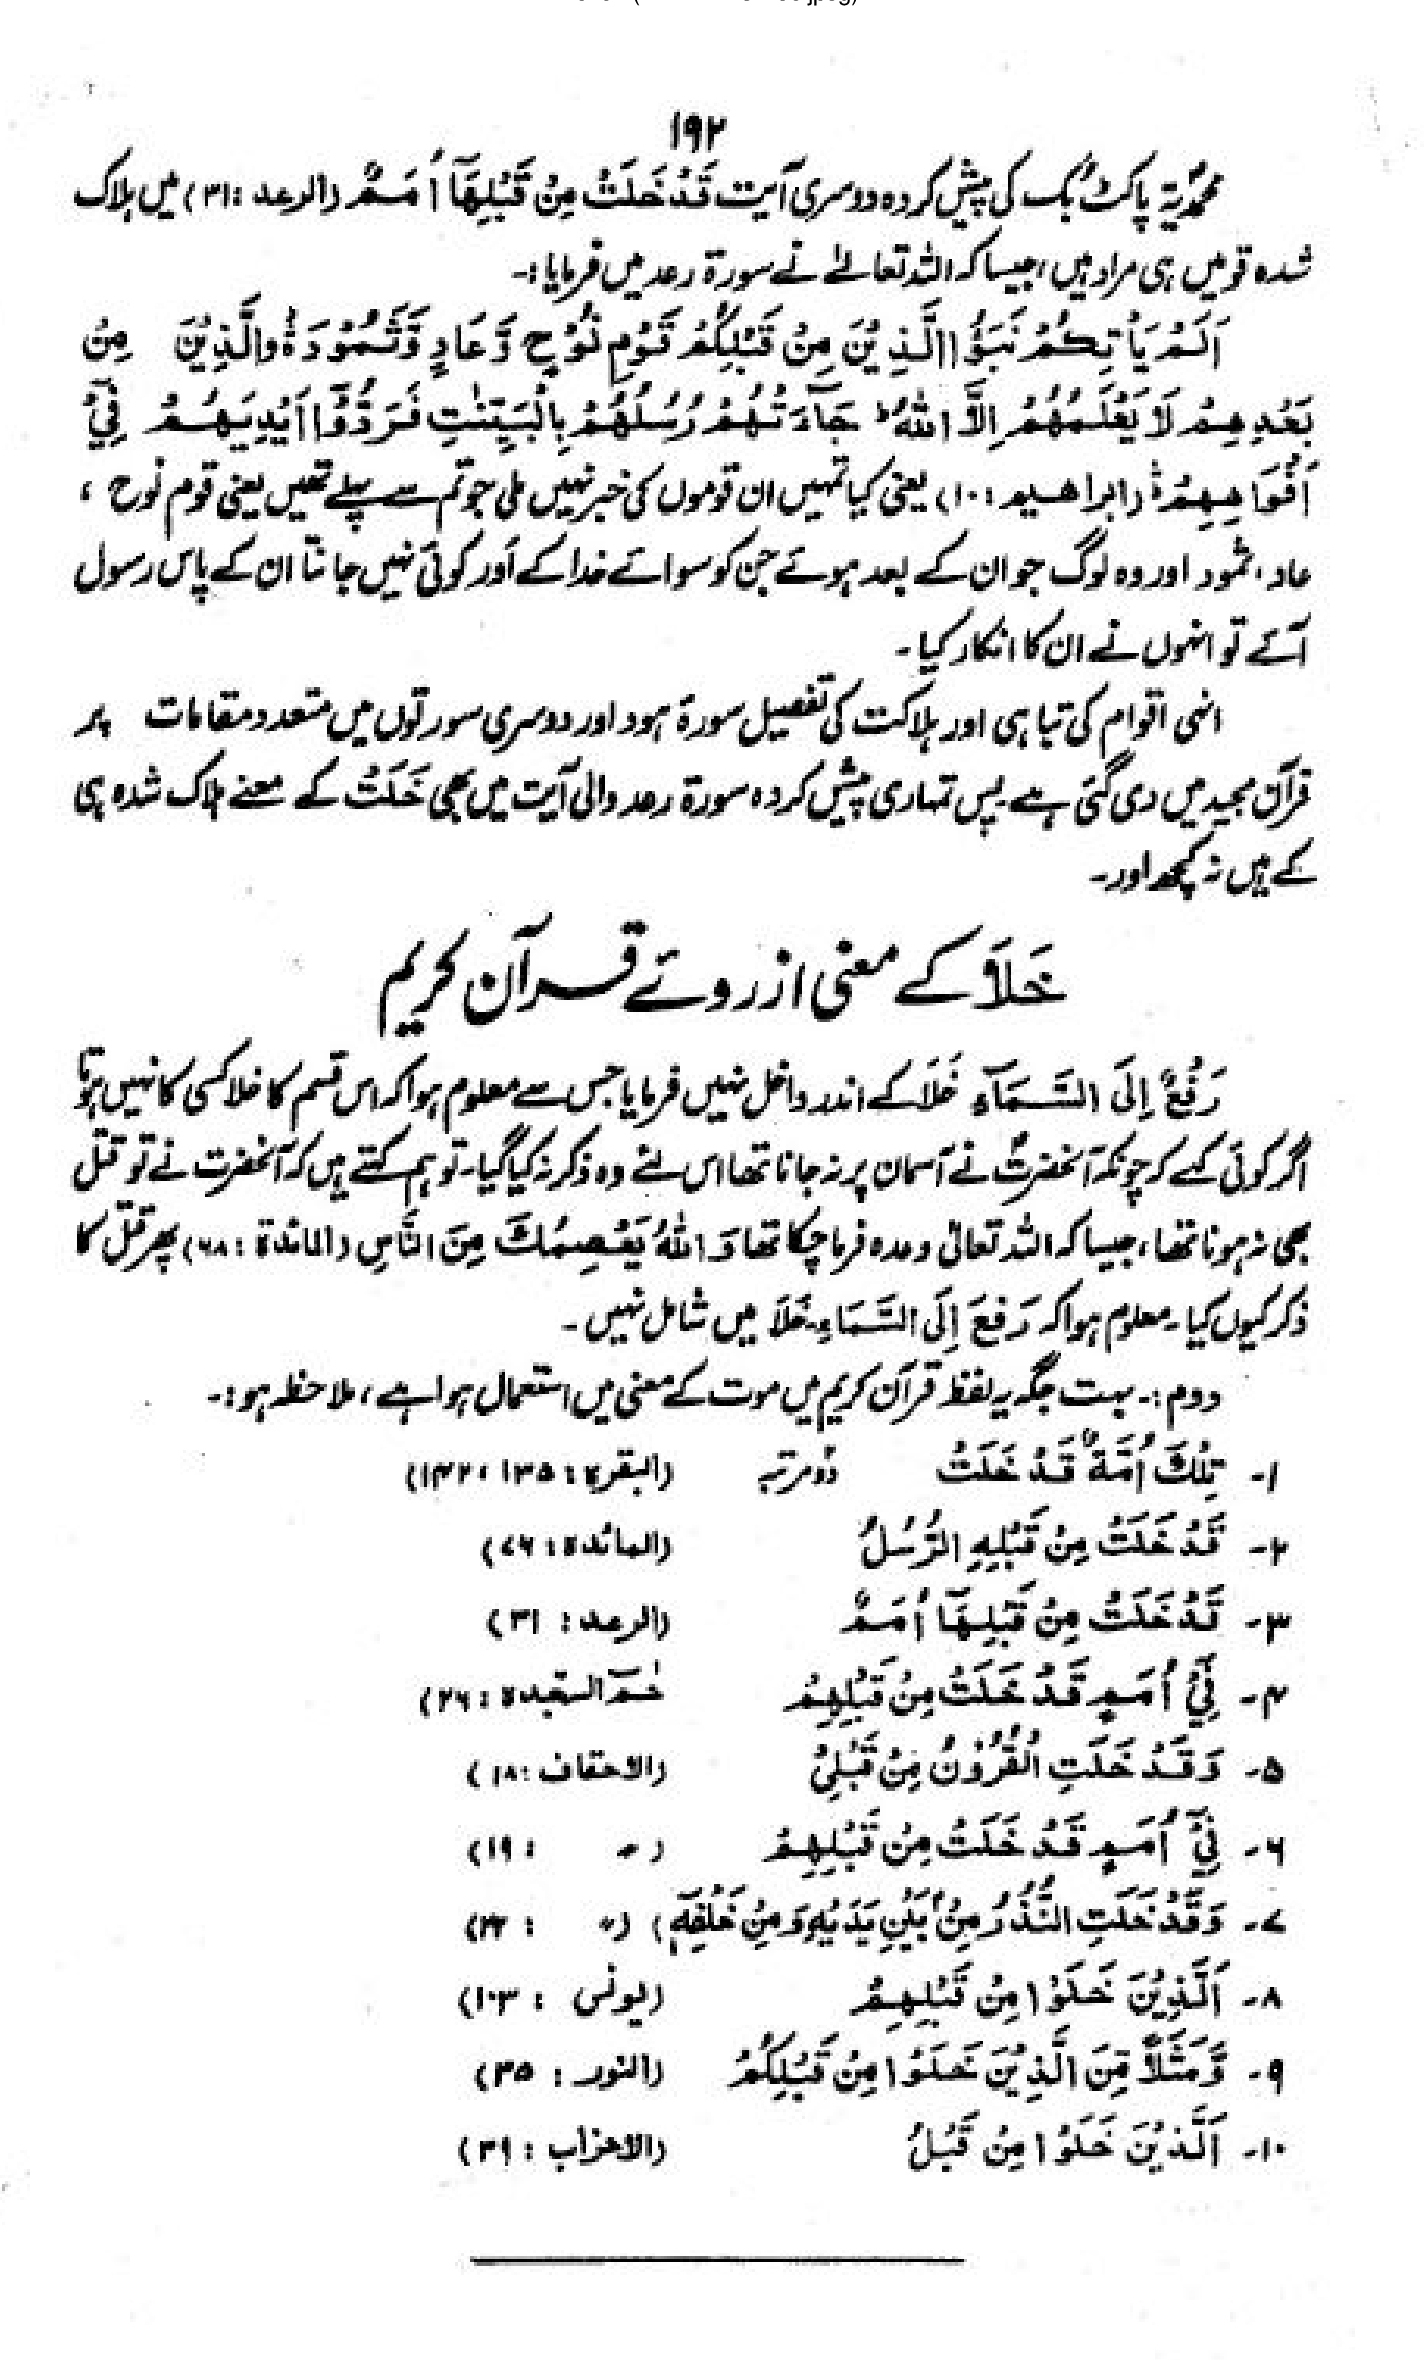 ۱۹۲
محمدؐیہ پاکٹ بُک کی پیش کردہ دوسری آیت قَدْ خَلَتْ مِنْ قَبْلِهَآ أُمَمٌ (الرعد : ۳۱) میں ہلاک
شدہ قومیں ہی مراد ہیں، جیسا کہ اللہ تعالےٰ نے سورۃ رعد میں فرمایا :۔
اَلَمْ يَأْتِكُمْ نَبَؤُا الَّذِيْنَ مِنْ قَبْلِكُمْ قَوْمِ نُوْحٍ وَّ عَادٍ وَّثَمُوْدَ ۛ وَالَّذِيْنَ مِنْ
بَعْدِهِمْ لَا يَعْلَمُهُمْ اِلَّا اللّٰهُ ؕ جَآءَتْهُمْ رُسُلُهُمْ بِالْبَيِّنٰتِ فَرَدُّوْٓا اَيْدِيَهُمْ فِيْٓ
اَفْوَاهِهِمْ ۛ (ابراهيم : ۱۰) یعنی کیا تمہیں ان قوموں کی خبر نہیں ملی جو تم سے پہلے تھیں یعنی قوم نوح ،
عاد، ثمود اور وہ لوگ جو ان کے بعد ہوئے جن کو سوائے خدا کے اَور کوئی نہیں جانتا ان کے پاس رسول
آئے تو انہوں نے ان کا انکار کیا ۔
انہی اقوام کی تباہی اور ہلاکت کی تفصیل سورۃ ہود اور دوسری سورتوں میں متعدد مقامات پر
قرآن مجید میں دی گئی ہے۔ پس تمہاری پیش کردہ سورۃ رعد والی آیت میں بھی خَلَتْ کے معنے ہلاک شدہ ہی
کے ہیں نہ کچھ اور۔
خَلَا کے معنی از روئے قرآن کریم
رَفْعٌ اِلَی السَّمَآءِ خَلَا کے اندر داخل نہیں فرمایا جس سے معلوم ہوا کہ اس قسم کا خلا کسی کا نہیں ہوتا
اگر کوئی کہے کہ چونکہ آنحضرتؐ نے آسمان پر نہ جانا تھا اس لئے وہ ذکر نہ کیا گیا۔ تو ہم کہتے ہیں کہ آنحضرت نے تو قتل
بھی نہ ہونا تھا، جیسا کہ اللہ تعالیٰ وعدہ فرما چکا تھا وَ اللّٰهُ يَعْصِمُكَ مِنَ النَّاسِ (المائدۃ : ۶۸) پھر قتل کا
ذکر کیوں کیا۔ معلوم ہوا کہ رَفعَ اِلَی السَّمَاءِ خَلَا میں شامل نہیں ۔
دوم :۔ بہت جگہ یہ لفظ قرآن کریم میں موت کے معنی میں استعمال ہوا ہے ، ملاحظہ ہو :۔
۱۔ تِلْكَ اُمَّةٌ قَدْ خَلَتْ دُو مرتبہ (البقرۃ : ۱۳۵ ، ۱۴۲)
۲۔ قَدْ خَلَتْ مِنْ قَبْلِهِ الرُّسُلُ (المائدۃ : ۷۶)
۳۔ قَدْ خَلَتْ مِنْ قَبْلِهَآ اُمَمٌ (الرعد : ۳۱)
۴۔ فِيْٓ اُمَمٍ قَدْ خَلَتْ مِنْ قَبْلِهِمْ (حٰمٓ السجدۃ : ۲۶)
۵۔ وَقَدْ خَلَتِ الْقُرُوْنُ مِنْ قَبْلِيْ (الاحقاف : ۱۸)
۶۔ فِيْٓ اُمَمٍ قَدْ خَلَتْ مِنْ قَبْلِهِمْ ( ״ : ۱۹)
۷۔ وَقَدْ خَلَتِ النُّذُرُ مِنْۢ بَيْنِ يَدَيْهِ وَمِنْ خَلْفِهٖٓ ) (״ : ۲۲)
۸۔ اَلَّذِيْنَ خَلَوْا مِنْ قَبْلِهِمْ (یونس : ۱۰۳)
۹۔ وَّمَثَلًا مِّنَ الَّذِيْنَ خَلَوْا مِنْ قَبْلِكُمْ (النور : ۳۵)
۱۰۔ اَلَّذِيْنَ خَلَوْا مِنْ قَبْلُ (الاحزاب : ۳۹)